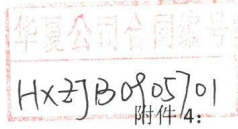 华夏公司合同编号
HXZJB0905701
附件4: